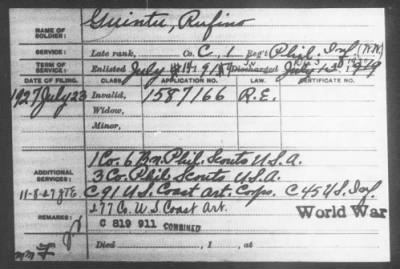 NAME OF SOLDIER: Guintu, Rufino
SERVICE: Late rank, Co. C, 1 Reg't Phil. Inf. (N.N.)
TERM OF SERVICE: Enlisted July 1919 Discharged July 13, 1919
DATE OF FILING. CLASS. APPLICATION NO. LAW. CERTIFICATE NO.
1927 July 23 Invalid, 1587166 R.E.
Widow,
Minor,
1 Co. 6 Bn. Phil. Scouts U.S.A.
ADDITIONAL SERVICES: 3 Co. Phil. Scouts U.S.A.
11-8-27 C 91 U.S. Coast Art. Corps. C 45 U.S. Inf.
REMARKS: 277 Co. U.S. Coast Art. World War
C 819 911 COMBINED
Died , 1 , at